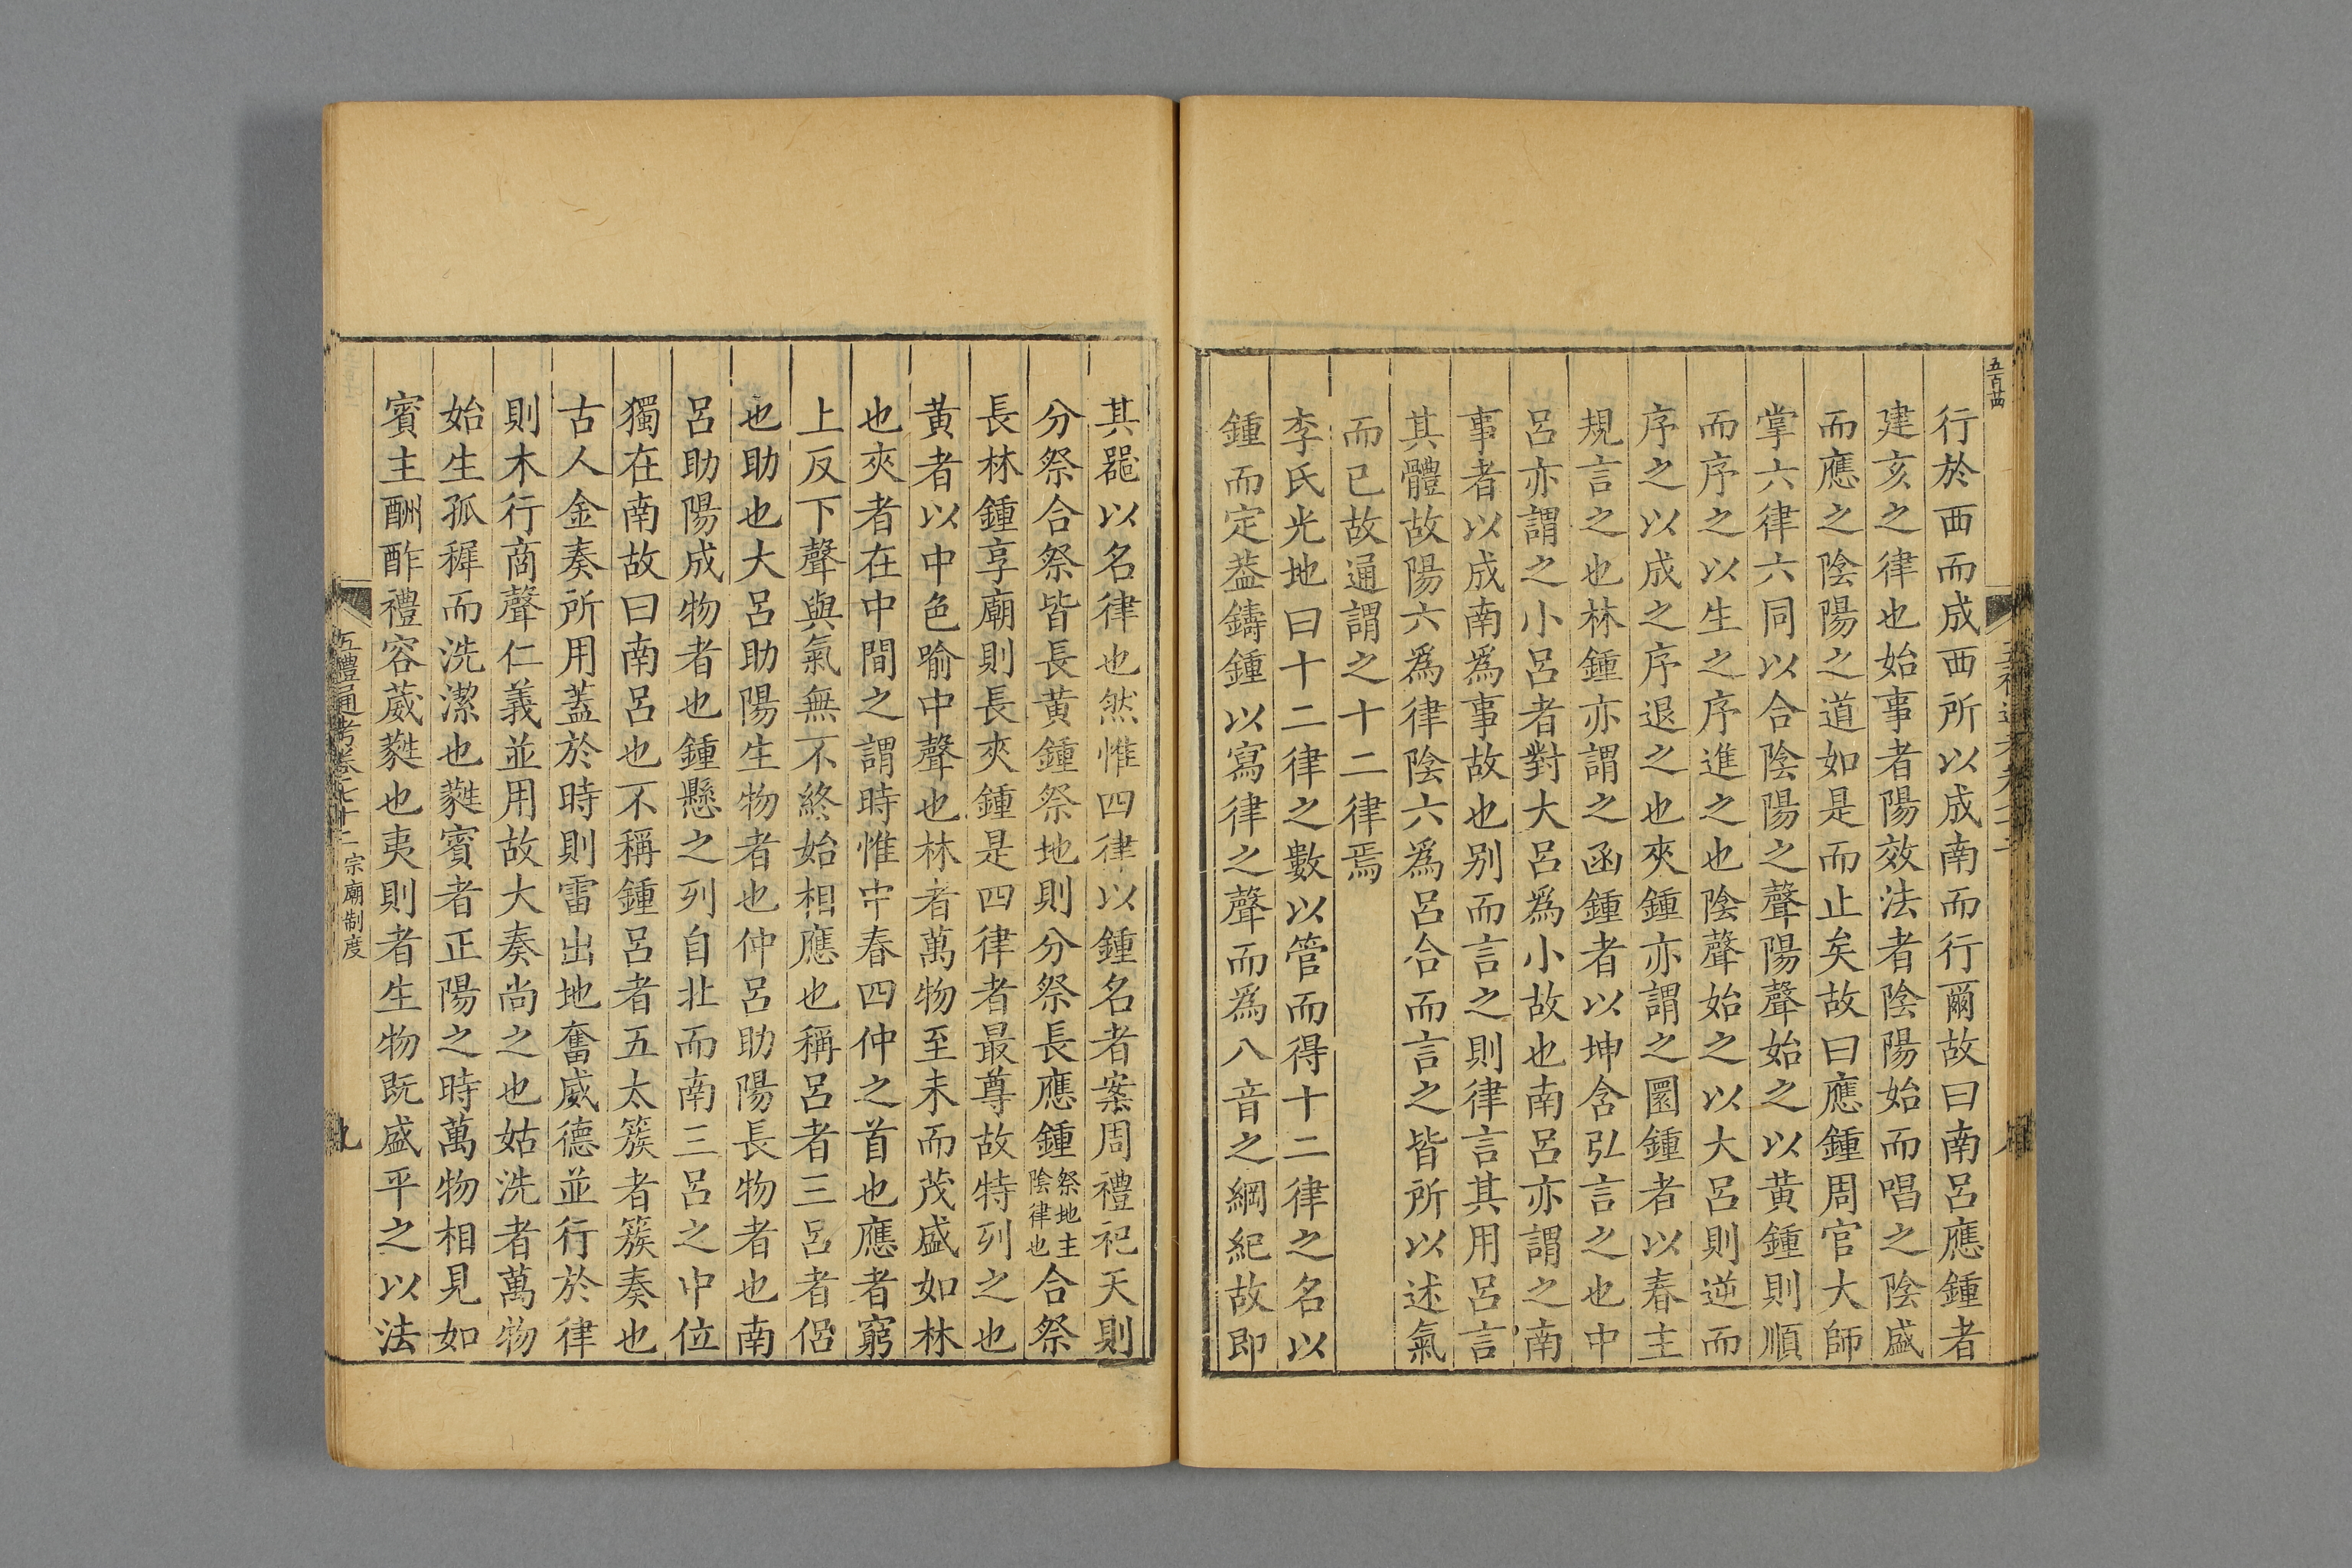 五百苗
行於西而成西所以成南而行爾故曰南呂應鍾者
建亥之律也始事者陽效法者陰陽始而唱之陰盛
而應之陰陽之道如是而止矣故曰應鍾周官大師
掌六律六同以合陰陽之聲陽聲始之以黄鍾則順
而序之以生之序進之也陰聲始之以大呂則逆而
序之以成之序退之也夾鍾亦謂之圜鍾者以春主
規言之也林鍾亦謂之函鍾者以坤含弘言之也中
呂亦謂之小呂者對大呂爲小故也南呂亦謂之南
事者以成南爲事故也别而言之則律言其用呂言
其體故陽六爲律陰六爲呂合而言之皆所以述氣
而已故通謂之十二律焉
李氏光地曰十二律之數以管而得十二律之名以
鍾而定葢鑄鍾以寫律之聲而爲八音之綱紀故即
其噐以名律也然惟四律以鍾名者案周禮祀天則
分祭合祭皆長黄鍾祭地則分祭長應鍾祭地主陰律也合祭
長林鍾享廟則長夾鍾是四律者最尊故特列之也
黄者以中色喻中聲也林者萬物至未而茂盛如林
也夾者在中間之謂時惟中春四仲之首也應者窮
上反下聲與氣無不終始相應也稱呂者三呂者侶
也助也大呂助陽生物者也仲呂助陽長物者也南
呂助陽成物者也鍾懸之列自北而南三呂之中位
獨在南故曰南呂也不稱鍾呂者五太簇者簇奏也
古人金奏所用蓋於時則雷出地奮威德並行於律
則木行商聲仁義並用故大奏尚之也姑洗者萬物
始生孤穉而洗潔也蕤賓者正陽之時萬物相見如
賓主酬酢禮容葳蕤也夷則者生物既盛平之以法
五禮通考卷七十二 宗廟制度
九